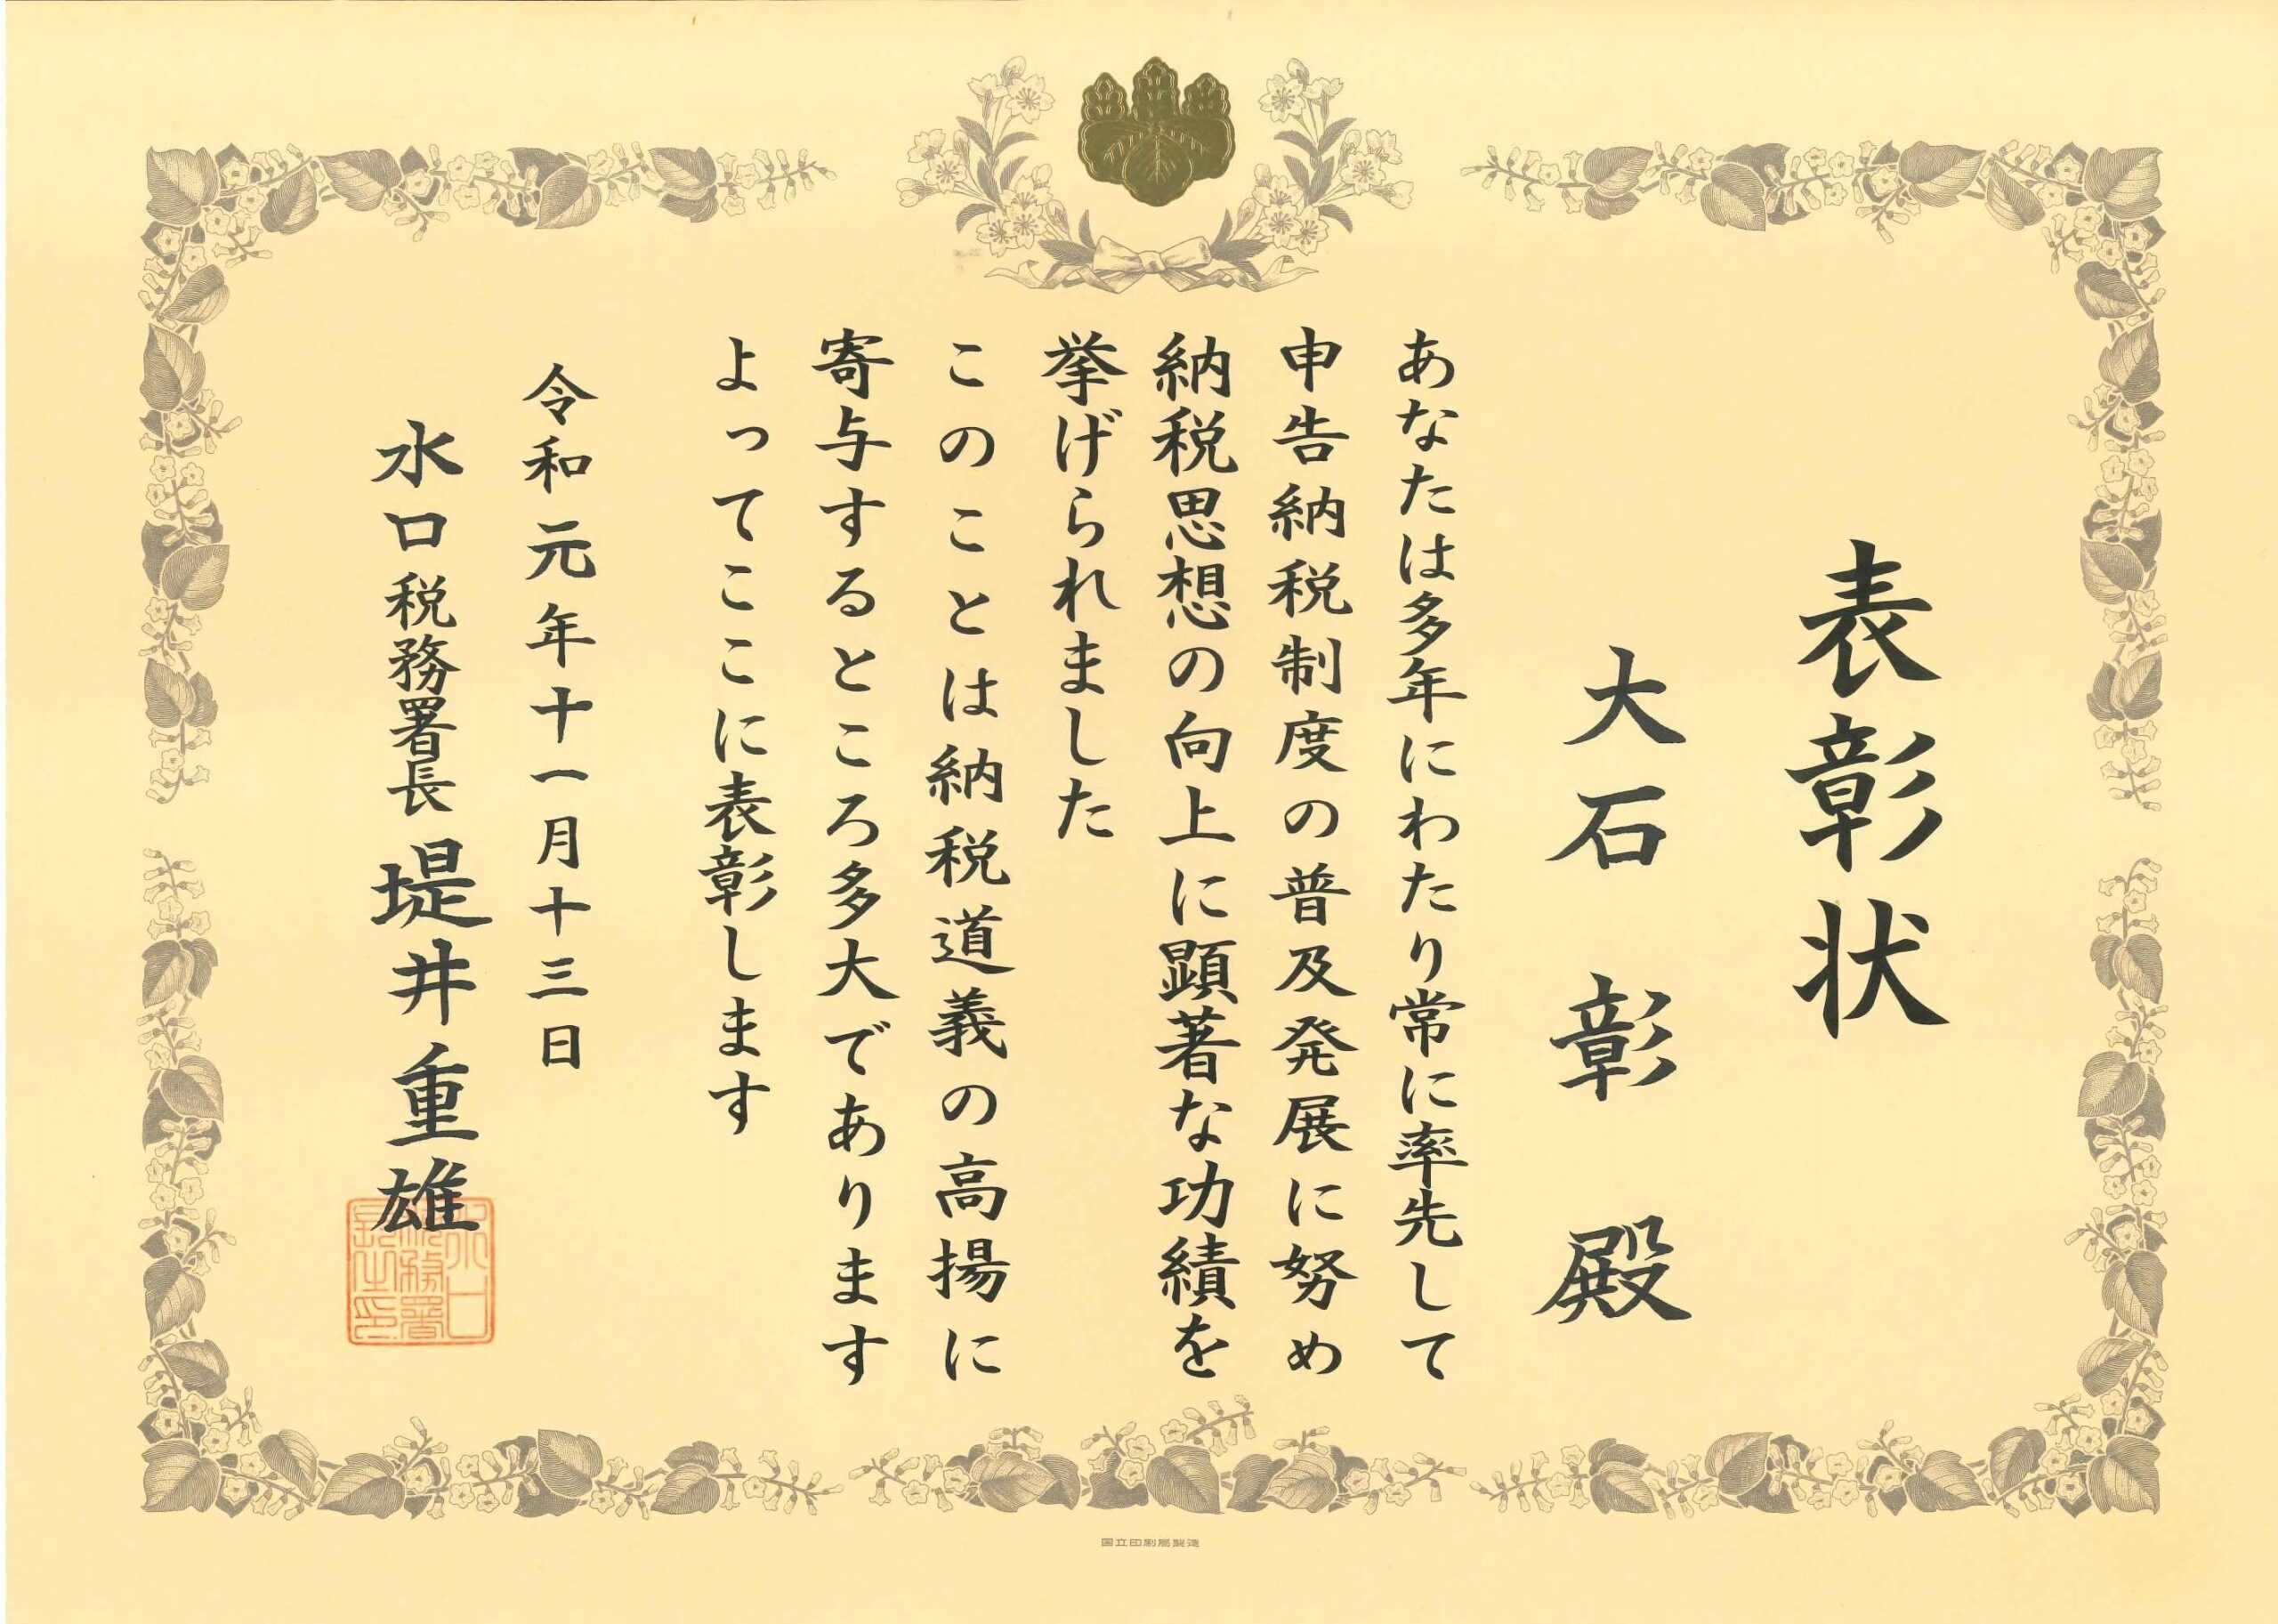 表彰状
大石 彰 殿
あなたは多年にわたり常に率先して
申告納税制度の普及発展に努め
納税思想の向上に顕著な功績を
挙げられました
このことは納税道義の高揚に
寄与するところ多大であります
よってここに表彰します
令和元年十一月十三日
水口税務署長 堤井重雄
水口
税務署
長之印
国立印刷局製造